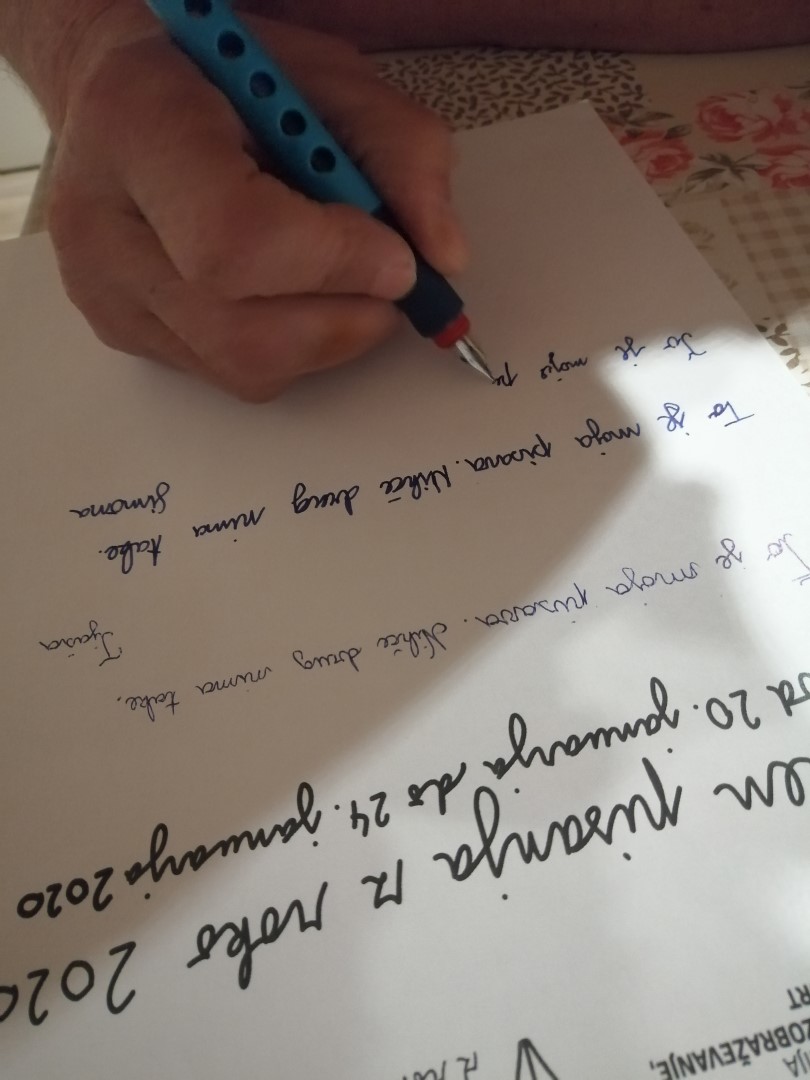 NJA
ZOBRAŽEVANJE,
RT
en pisanja z roko 2020
od 20. januarja do 24. januarja 2020
To je moja pisava. Nihče drug nima take.
Tjaša
To je moja pisava. Nihče drug nima take.
Simona
To je moja pi